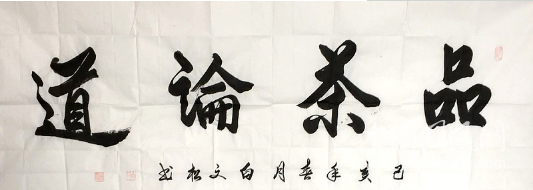 品茶論道
己亥年春月白文松書